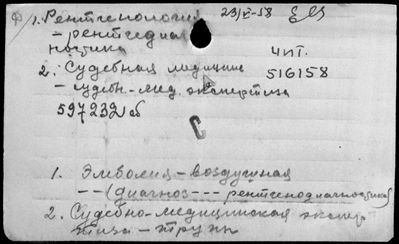 1. Рентгенология 23/V-58
- рентгенодиаг
ностика
чит.
2. Судебная медицина 516158
- судебн.-мед. экспертиза
597232 об
С
1. Эмболия - воздушная
- - (диагноз - - - рентгенодиагностика)
2. Судебно-медицинская экспер
тиза - трупы